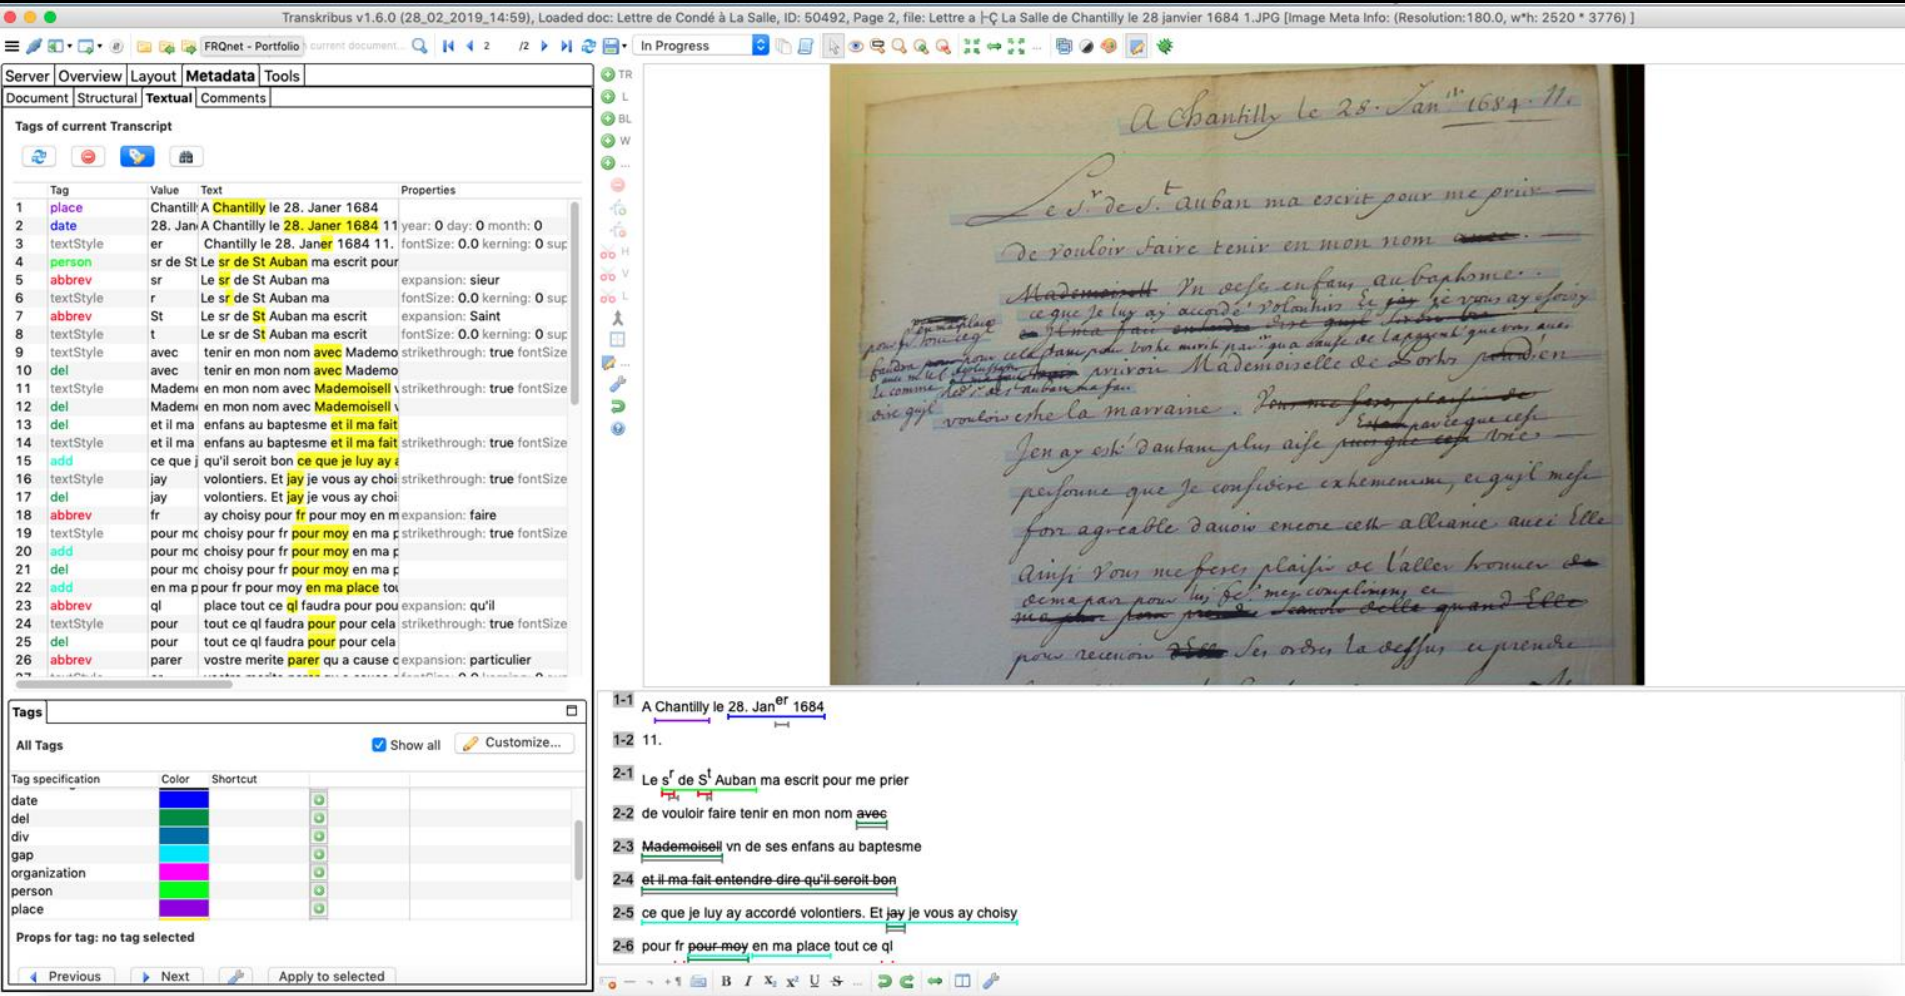 Transkribus v1.6.0 (28_02_2019_14:59), Loaded doc: Lettre de Condé à La Salle, ID: 50492, Page 2, file: Lettre a ├Ç La Salle de Chantilly le 28 janvier 1684 1.JPG [Image Meta Info: (Resolution:180.0, w*h: 2520 * 3776) ]
FRQnet - Portfolio current document... 2 /2 In Progress
Server Overview Layout Metadata Tools
Document Structural Textual Comments
Tags of current Transcript
Tag Value Text Properties
1 place Chantill A Chantilly le 28. Janer 1684
2 date 28. Jan A Chantilly le 28. Janer 1684 11 year: 0 day: 0 month: 0
3 textStyle er Chantilly le 28. Janer 1684 11. fontSize: 0.0 kerning: 0 sup
4 person sr de St Le sr de St Auban ma escrit pour
5 abbrev sr Le sr de St Auban ma expansion: sieur
6 textStyle r Le sr de St Auban ma fontSize: 0.0 kerning: 0 sup
7 abbrev St Le sr de St Auban ma escrit expansion: Saint
8 textStyle t Le sr de St Auban ma escrit fontSize: 0.0 kerning: 0 sup
9 textStyle avec tenir en mon nom avec Mademo strikethrough: true fontSize
10 del avec tenir en mon nom avec Mademo
11 textStyle Madem en mon nom avec Mademoisell v strikethrough: true fontSize
12 del Madem en mon nom avec Mademoisell v
13 del et il ma enfans au baptesme et il ma fait
14 textStyle et il ma enfans au baptesme et il ma fait strikethrough: true fontSize
15 add ce que j qu'il seroit bon ce que je luy ay a
16 textStyle jay volontiers. Et jay je vous ay choi strikethrough: true fontSize
17 del jay volontiers. Et jay je vous ay choi
18 abbrev fr ay choisy pour fr pour moy en m expansion: faire
19 textStyle pour mo choisy pour fr pour moy en ma p strikethrough: true fontSize
20 add pour mo choisy pour fr pour moy en ma p
21 del pour mo choisy pour fr pour moy en ma p
22 add en ma p pour fr pour moy en ma place tou
23 abbrev ql place tout ce ql faudra pour pou expansion: qu'il
24 textStyle pour tout ce ql faudra pour pour cela strikethrough: true fontSize
25 del pour tout ce ql faudra pour pour cela
26 abbrev parer vostre merite parer qu a cause d expansion: particulier
Tags
All Tags Show all Customize...
Tag specification Color Shortcut
date
del
div
gap
organization
person
place
Props for tag: no tag selected
Previous Next Apply to selected
TR
L
BL
W
...
H
V
L
A Chantilly le 28. Janer 1684. 11.
Le Sr de St. Auban ma escrit pour me prier
de vouloir faire tenir en mon nom avec
Mademoisell Vn de ses enfans au baptesme.
ce que je luy ay accordé volontiers Et jay je vous ay choisy
et il ma fait entendre dire quil seroit bon
pour cela tant pour vostre merite parer qu a cause de
prieroit Mademoiselle de
vouloir estre la marraine. Vous me feres plaisir de
parce que cest
Jen ay esté dautant plus aise puis que cest vne
personne que Je considere extrememem, et quil mest
fort agreable dauoir encore cette alliance auec Elle
Ainsi Vous me feres plaisir de l'aller trouuer de
de ma part pour luy mes complimens et
quand Elle
pour receuoir Ses ordres la dessus et prendre
1-1 A Chantilly le 28. Janer 1684
1-2 11.
2-1 Le sr de St Auban ma escrit pour me prier
2-2 de vouloir faire tenir en mon nom avec
2-3 Mademoisell vn de ses enfans au baptesme
2-4 et il ma fait entendre dire qu'il seroit bon
2-5 ce que je luy ay accordé volontiers. Et jay je vous ay choisy
2-6 pour fr pour moy en ma place tout ce ql
B I X₂ X² U S ...